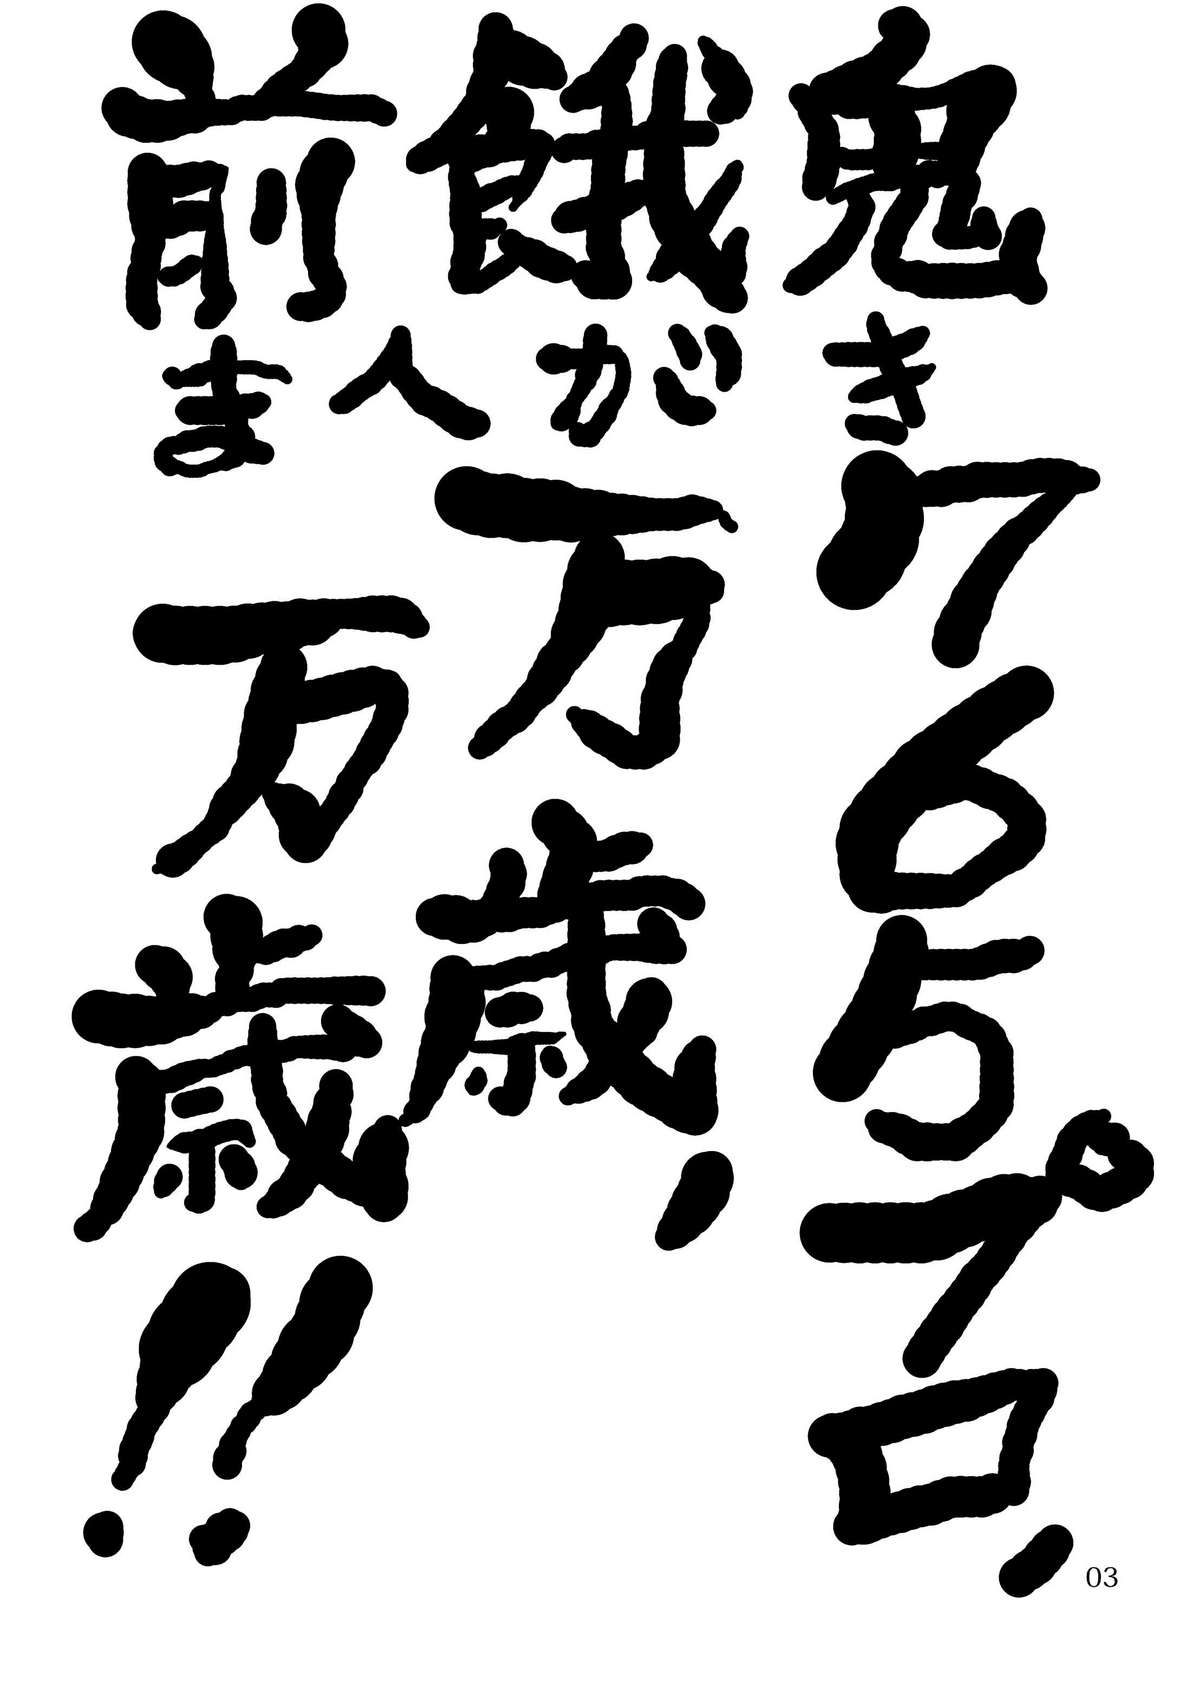 鬼き765プロ、
餓が万歳、
前まへ万歳!!
03